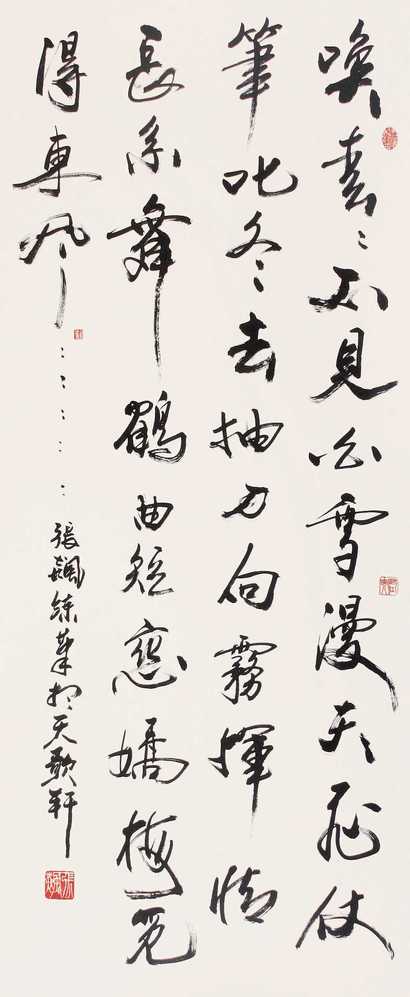 喚春〻不見白雪漫天飛仗
筆叱冬去抽刀向霧揮情
長系舞鶴曲短戀嬌梅覓
得東風……
張飆練筆於天歌軒